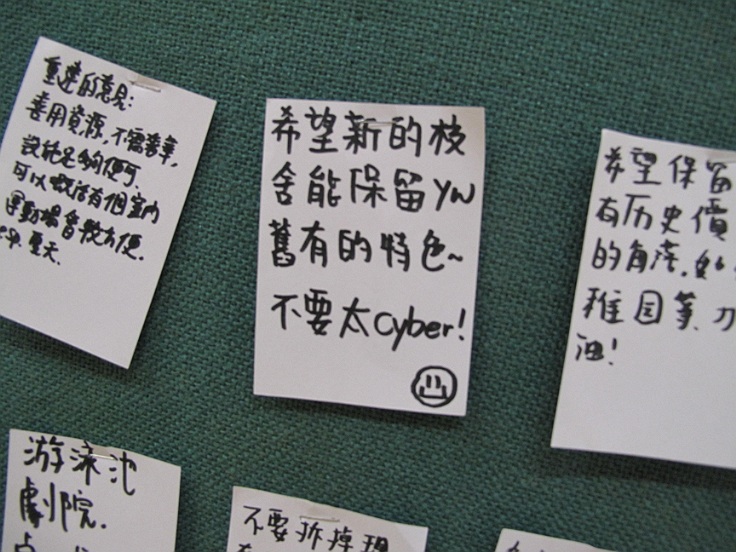 重建的意見:
善用資源,不需奢華,
設施足夠便可.
可以嘅話有個室內
運動場會較方便.
夏天.
希望新的校
舍能保留YW
舊有的特色~
不要太cyber!
希望保留
有历史價
的角落.
稚园等.
油!
游泳池
劇院.
不要拆掉現